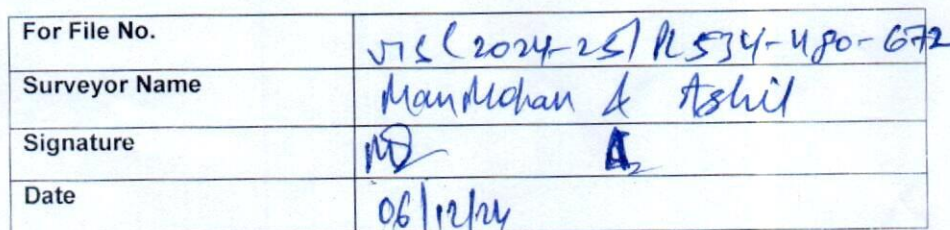 For File No. VIS (2024-25) PL534-480-672
Surveyor Name ManMohan & Ashil
Signature
Date 06/12/24